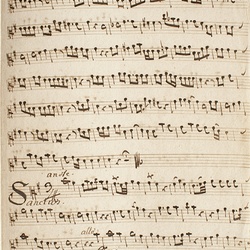 andte
Sanctus
allo